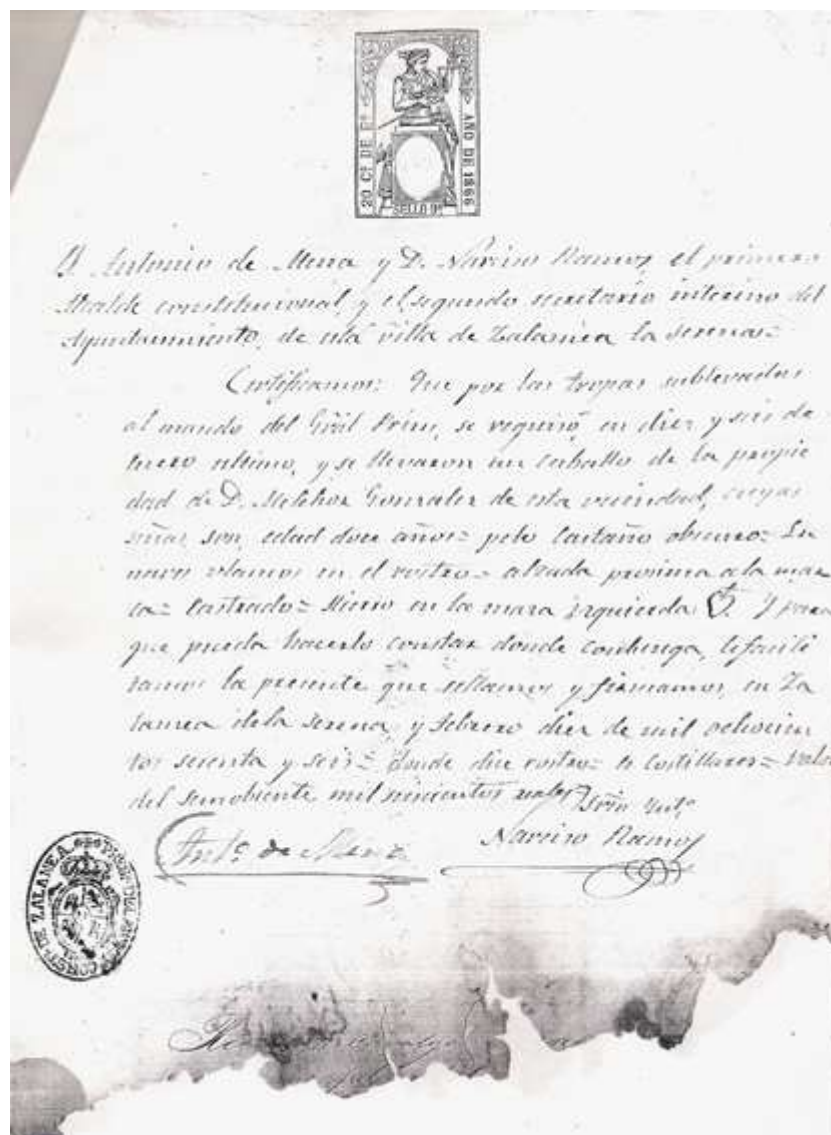 20 Cs DE Eo
AÑO DE 1866
SELLO 9º
D. Antonio de Mena y D. Narciso Ramos, el primero
Alcalde constitucional, y el segundo secretario interino del
Ayuntamiento, de esta villa de Zalamea la Serena=
Certificamos: Que por las tropas sublevadas
al mando del Gral Prim, se requisó, en diez y seis de
Enero ultimo, y se llevaron un caballo de la propie
dad de D. Melchor Gonzalez de esta vecindad, cuyas
señas son, edad doce años= pelo castaño obscuro= Lu
nares blancos en el rostro= alzada proxima a la mar
ca= Castrado= Hierro en la izquierda Y para
que pueda hacerlo constar donde conbenga, le facili
tamos la presente que sellamos y firmamos, en Za
lamea de la Serena, y febrero diez de mil ochocien
tos sesenta y seis= donde dice rostro= Costillares= Valor
del semobiente mil seiscientos reales
Srio Into
Anto de Mena
Narciso Ramos
CONSTL DE ZALAMEA